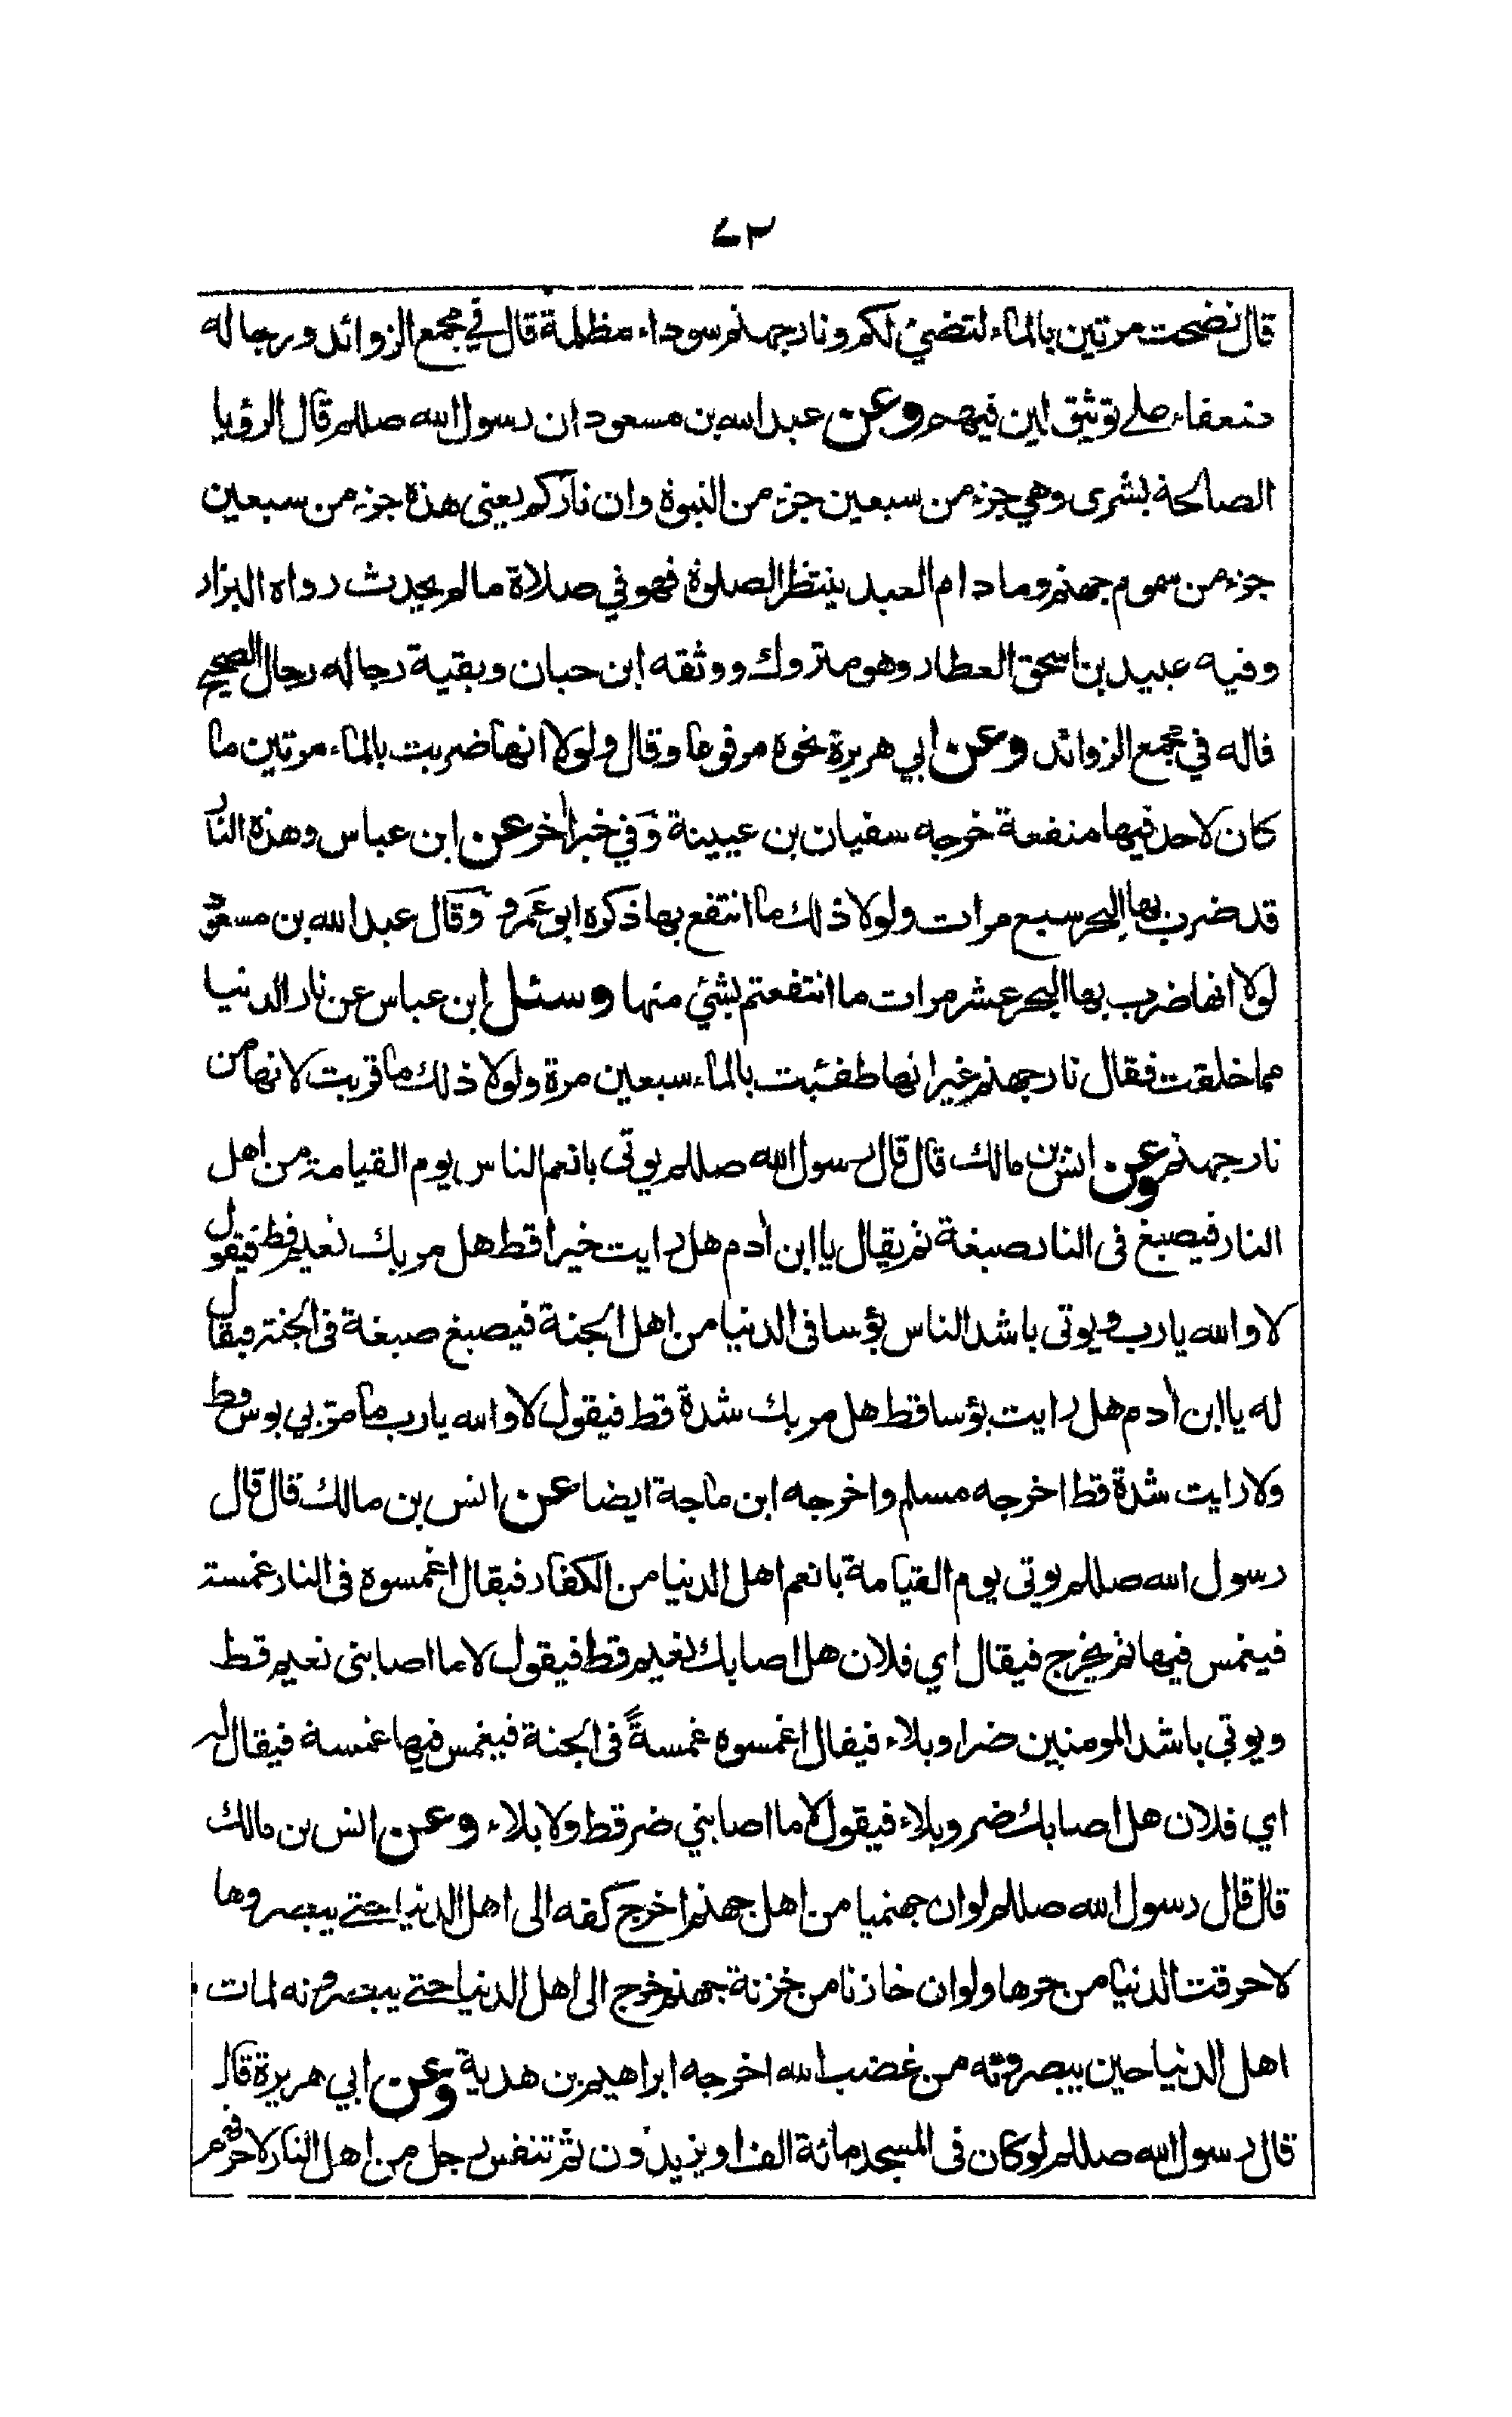 ٧٣
قال نضحت مرتين بالماء لتضئ لكم ونار جهنم سوداء مظلمة قال في مجمع الزوائد ورجاله
ضعفاء على توثيق لين فيهم وعن عبد الله بن مسعود ان رسول الله صللم قال الرؤيا
الصالحة بشرى وهي جزء من سبعين جزء من النبوة وان ناركم يعنى هذه جزء من سبعين
جزء من سموم جهنم وما دام العبد ينتظر الصلوة فهو في صلاة ما لم يحدث رواه البزار
وفيه عبيد بن اسحق العطار وهو متروك ووثقه ابن حبان وبقية رجاله رجال الصحيح
قاله في مجمع الزوائد وعن ابي هريرة نحوه مرفوعا وقال ولولا انها ضربت بالماء مرتين ما
كان لاحد فيها منفعة خرجه سفيان بن عيينة وَفي خبر اٰخر عن ابن عباس وهذه النار
قد ضرب بها البحر سبع مرات ولولا ذلك ما انتفع بها ذكره ابو عَمرو وَقَال عبد الله بن مسعود
لولا انها ضرب بها البحر عشر مرات ما انتفعتم بشئ منها وسئل ابن عباس عن نار الدنيا
مما خلقت فقال نار جهنم غير انها طفئت بالماء سبعين مرة ولولا ذلك ما قربت لانها من
نار جهنم وعن انس بن مالك قال قال رسول الله صللم يوتى بانعم الناس يوم القيامة من اهل
النار فيصبغ فى النار صبغة ثم يقال يا ابن اٰدم هل رايت خيرا قط هل مر بك نعيم قط فيقول
لا والله يارب ويوتى باشد الناس بؤسا فى الدنيا من اهل الجنة فيصبغ صبغة فى الجنة فيقال
له يا ابن اٰدم هل رايت بؤسا قط هل مر بك شدة قط فيقول لا والله يارب ما مر بي بوس قط
ولا رايت شدة قط اخرجه مسلم واخرجه ابن ماجة ايضا عن انس بن مالك قال قال
رسول الله صللم يوتى يوم القيامة بانعم اهل الدنيا من الكفار فيقال اغمسوه فى النار غمسة
فيغمس فيها ثم يخرج فيقال اي فلان هل اصابك نعيم قط فيقول لا ما اصابنى نعيم قط
ويوتى باشد المومنين ضرا وبلاء فيقال اغمسوه غمسةً فى الجنة فيغمس فيها غمسة فيقال له
اي فلان هل اصابك ضر وبلاء فيقول لا ما اصابني ضر قط ولا بلاء وعن انس بن مالك
قال قال رسول الله صللم لوان جهنميا من اهل جهنم اخرج كفه الى اهل الدنيا حتى يبصروها
لاحرقت الدنيا من حرها ولوان خازنا من خزنة جهنم خرج الى اهل الدنيا حتى يبصرونه لمات
اهل الدنيا حين يبصرونه من غضب الله اخرجه ابراهيم بن هدية وعن ابي هريرة قال
قال رسول الله صللم لوكان فى المسجد مائة الف او يزيدون ثم تنفس رجل من اهل النار لاحرقهم